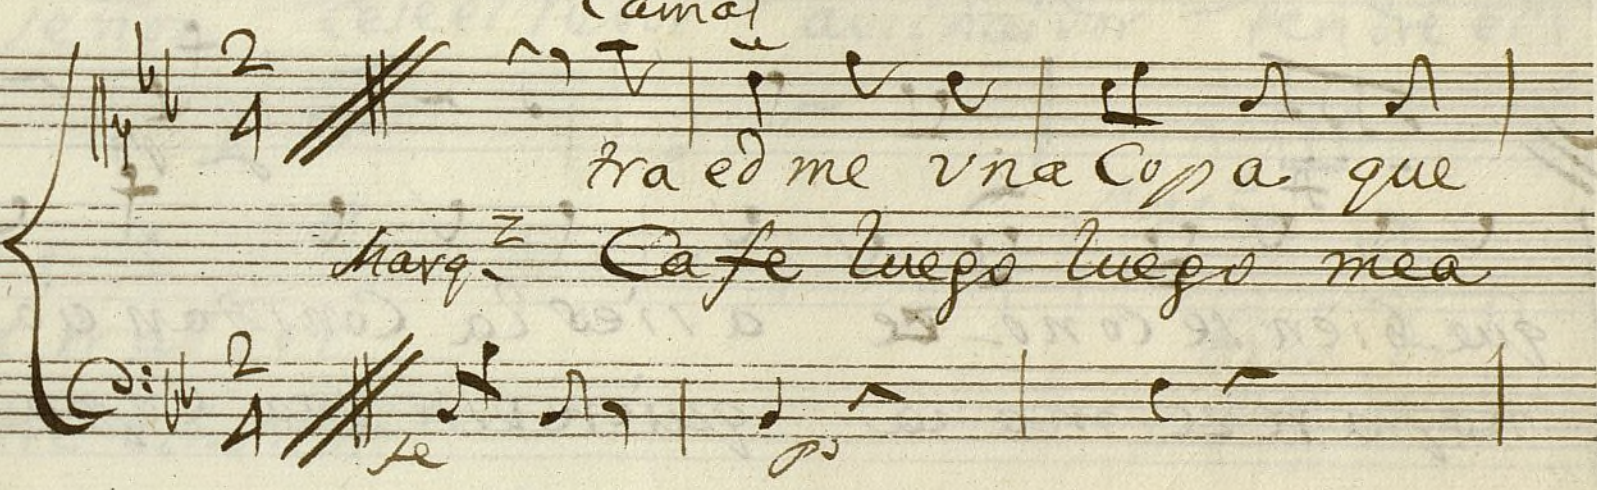 2
4
tra ed me vna Copa que
Marq.z Cafe luego luego mea
2
4
fe
po